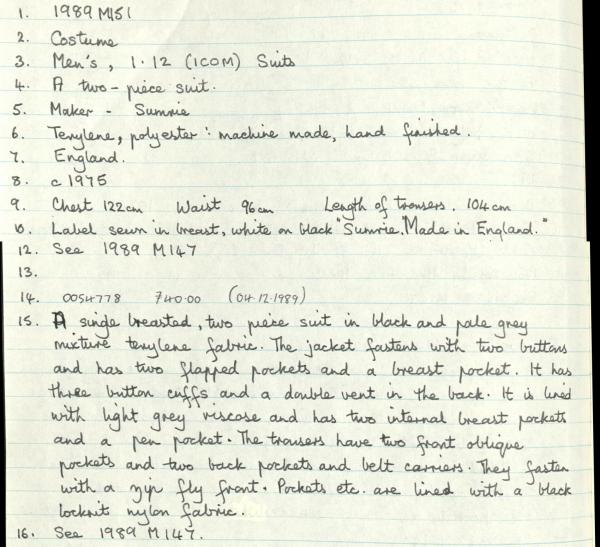 1. 1989 M151
2. Costume
3. Men's, 1.12 (ICOM) Suits
4. A two-piece suit.
5. Maker - Sumrie
6. Terylene, polyester: machine made, hand finished.
7. England.
8. c1975
9. Chest 122cm Waist 96cm Length of trousers. 104cm
10. Label sewn in breast, white on black "Sumrie. Made in England."
12. See 1989 M147
13.
14. 0054778 740.00 (04.12.1989)
15. A single breasted, two piece suit in black and pale grey
mixture terylene fabric. The jacket fastens with two buttons
and has two flapped pockets and a breast pocket. It has
three button cuffs and a double vent in the back. It is lined
with light grey viscose and has two internal breast pockets
and a pen pocket. The trousers have two front oblique
pockets and two back pockets and belt carriers. They fasten
with a zip fly front. Pockets etc. are lined with a black
locknit nylon fabric.
16. See 1989 M147.